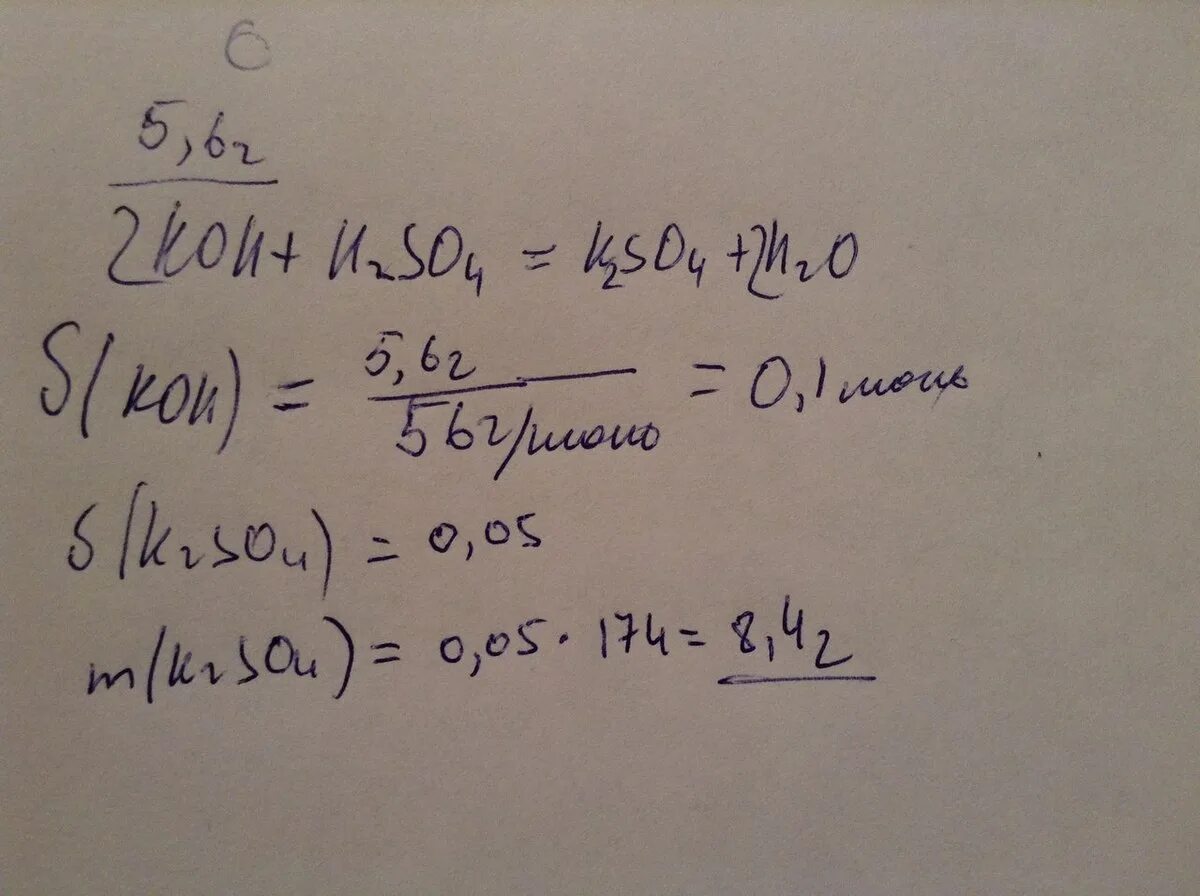 6
5,6г
2KOH + H₂SO₄ = K₂SO₄ + 2H₂O
S(KOH) = 5,6г / 56г/моль = 0,1 моль
S(K₂SO₄) = 0,05
m(K₂SO₄) = 0,05 · 174 = 8,4г